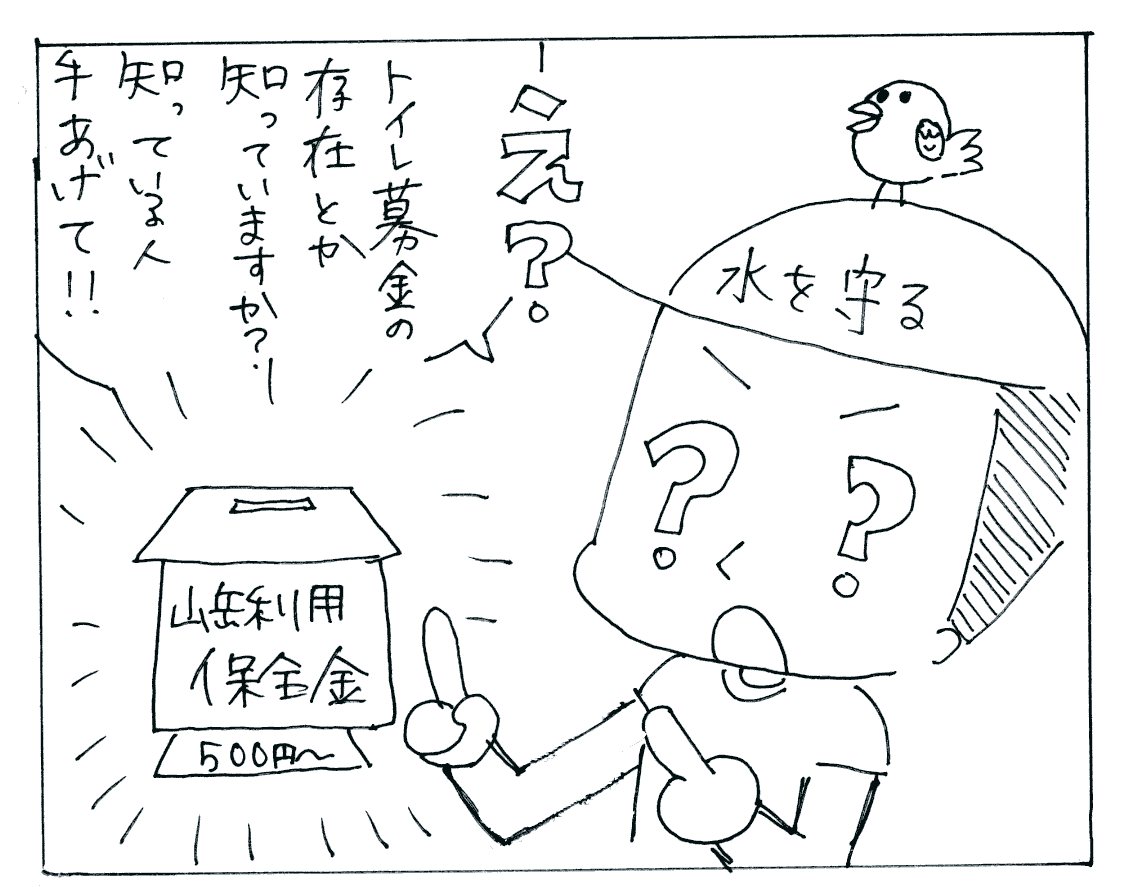 え?
トイレ募金の
存在とか
知っていますか?!
知っている人
手あげて!!
水を守る
山岳利用
保全金
500円〜